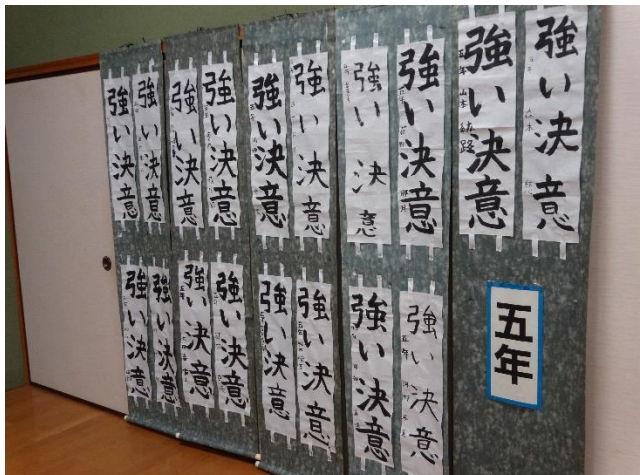 強い決意
強い決意
五年 山本
強い決意
強い決意
強い決意
強い決意
強い決意
強い決意
強い決意
強い決意
五年
強い決意
五年
強い決意
強い決意
五年
強い決意
強い決意
強い決意
強い決意
強い決意